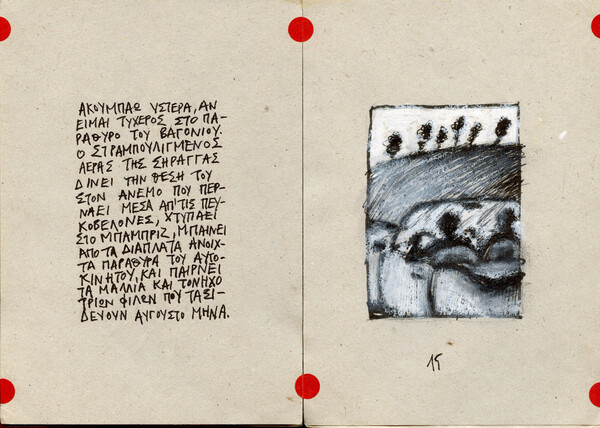 ΑΚΟΥΜΠΑΩ ΥΣΤΕΡΑ, ΑΝ
ΕΙΜΑΙ ΤΥΧΕΡΟΣ ΣΤΟ ΠΑ-
ΡΑΘΥΡΟ ΤΟΥ ΒΑΓΟΝΙΟΥ.
Ο ΣΤΡΑΜΠΟΥΛΙΓΜΕΝΟΣ
ΑΕΡΑΣ ΤΗΣ ΣΗΡΑΓΓΑΣ
ΔΙΝΕΙ ΤΗΝ ΘΕΣΗ ΤΟΥ
ΣΤΟΝ ΑΝΕΜΟ ΠΟΥ ΠΕΡ-
ΝΑΕΙ ΜΕΣΑ ΑΠ'ΤΙΣ ΠΕΥ-
ΚΟΒΕΛΟΝΕΣ, ΧΤΥΠΑΕΙ
ΣΤΟ ΜΠΑΜΠΡΙΖ, ΜΠΑΙΝΕΙ
ΑΠΟ ΤΑ ΔΙΑΠΛΑΤΑ ΑΝΟΙΧ-
ΤΑ ΠΑΡΑΘΥΡΑ ΤΟΥ ΑΥΤΟ-
ΚΙΝΗΤΟΥ, ΚΑΙ ΠΑΙΡΝΕΙ
ΤΑ ΜΑΛΛΙΑ ΚΑΙ ΤΟΝ ΗΧΟ
ΤΡΙΩΝ ΦΙΛΩΝ ΠΟΥ ΤΑΞΙ-
ΔΕΥΟΥΝ ΑΥΓΟΥΣΤΟ ΜΗΝΑ.
15